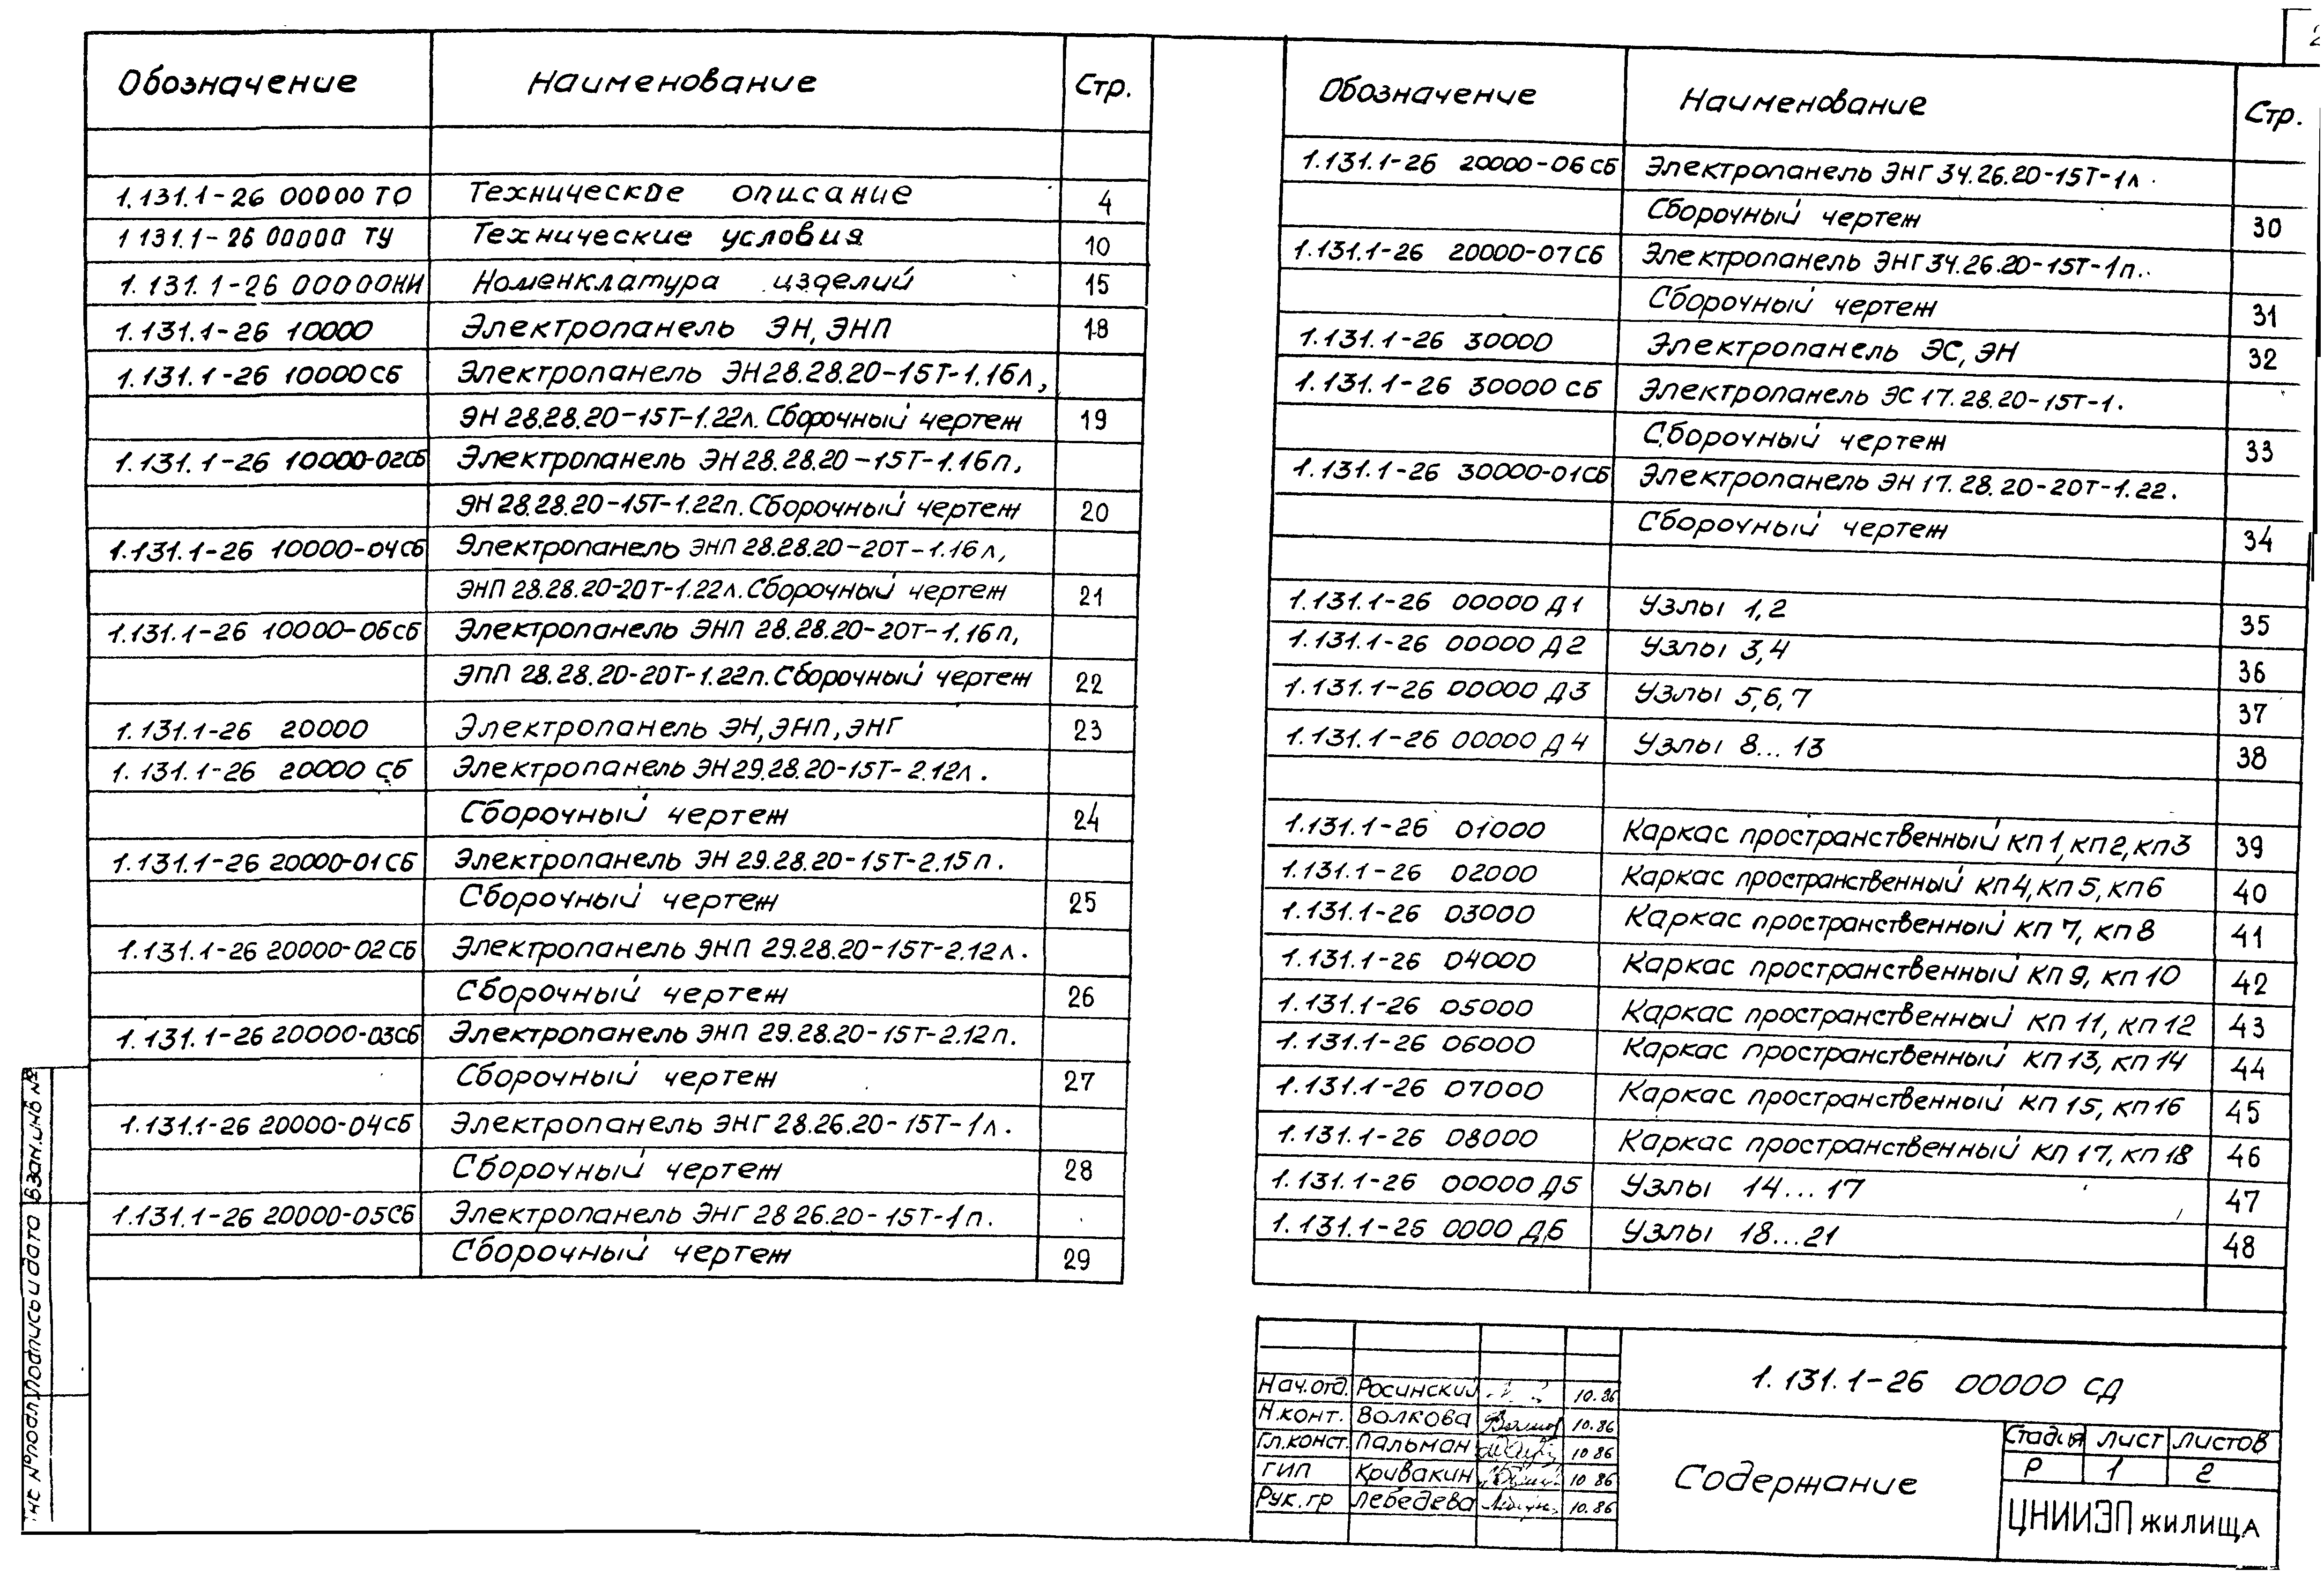 Обозначение Наименование Стр.
1.131.1-26 00000 ТО Техническое описание 4
1 131.1-26 00000 ТУ Технические условия 10
1.131.1-26 00000НИ Номенклатура изделий 15
1.131.1-26 10000 Электропанель ЭН, ЭНП 18
1.131.1-26 10000СБ Электропанель ЭН28.28.20-15Т-1.16л,
ЭН 28.28.20-15Т-1.22л. Сборочный чертеж 19
1.131.1-26 10000-02СБ Электропанель ЭН28.28.20-15Т-1.16п,
ЭН28.28.20-15Т-1.22п. Сборочный чертеж 20
1.131.1-26 10000-04СБ Электропанель ЭНП 28.28.20-20Т-1.16л,
ЭНП 28.28.20-20Т-1.22л. Сборочный чертеж 21
1.131.1-26 10000-06СБ Электропанель ЭНП 28.28.20-20Т-1.16п,
ЭПП 28.28.20-20Т-1.22п. Сборочный чертеж 22
1.131.1-26 20000 Электропанель ЭН, ЭНП, ЭНГ 23
1.131.1-26 20000 СБ Электропанель ЭН29.28.20-15Т-2.12л.
Сборочный чертеж 24
1.131.1-26 20000-01СБ Электропанель ЭН 29.28.20-15Т-2.15п.
Сборочный чертеж 25
1.131.1-26 20000-02СБ Электропанель ЭНП 29.28.20-15Т-2.12л.
Сборочный чертеж 26
1.131.1-26 20000-03СБ Электропанель ЭНП 29.28.20-15Т-2.12п.
Сборочный чертеж 27
1.131.1-26 20000-04СБ Электропанель ЭНГ 28.26.20-15Т-1л.
Сборочный чертеж 28
1.131.1-26 20000-05СБ Электропанель ЭНГ 28 26.20-15Т-1п.
Сборочный чертеж 29
2
Обозначение Наименование Стр.
1.131.1-26 20000-06СБ Электропанель ЭНГ 34.26.20-15Т-1л.
Сборочный чертеж 30
1.131.1-26 20000-07СБ Электропанель ЭНГ34.26.20-15Т-1п.
Сборочный чертеж 31
1.131.1-26 30000 Электропанель ЭС, ЭН 32
1.131.1-26 30000 СБ Электропанель ЭС 17.28.20-15Т-1.
Сборочный чертеж 33
1.131.1-26 30000-01СБ Электропанель ЭН 17.28.20-20Т-1.22.
Сборочный чертеж 34
1.131.1-26 00000 Д1 Узлы 1,2 35
1.131.1-26 00000 Д2 Узлы 3,4 36
1.131.1-26 00000 Д3 Узлы 5,6,7 37
1.131.1-26 00000 Д4 Узлы 8...13 38
1.131.1-26 01000 Каркас пространственный КП1, КП2, КП3 39
1.131.1-26 02000 Каркас пространственный КП4, КП5, КП6 40
1.131.1-26 03000 Каркас пространственный КП 7, КП 8 41
1.131.1-26 04000 Каркас пространственный КП 9, КП 10 42
1.131.1-26 05000 Каркас пространственный КП 11, КП 12 43
1.131.1-26 06000 Каркас пространственный КП 13, КП 14 44
1.131.1-26 07000 Каркас пространственный КП 15, КП16 45
1.131.1-26 08000 Каркас пространственный КП 17, КП 18 46
1.131.1-26 00000 Д5 Узлы 14...17 47
1.131.1-26 0000 Д6 Узлы 18...21 48
Взам.инв №
Подпись и дата
Инв № подл.
Нач.отд. Росинский 10.86
Н.конт. Волкова 10.86
Гл.конст. Пальман 10 86
ГИП Кривакин 10 86
Рук.гр Лебедева 10.86
1.131.1-26 00000 СД
Содержание
Стадия Лист Листов
Р 1 2
ЦНИИЭП жилища